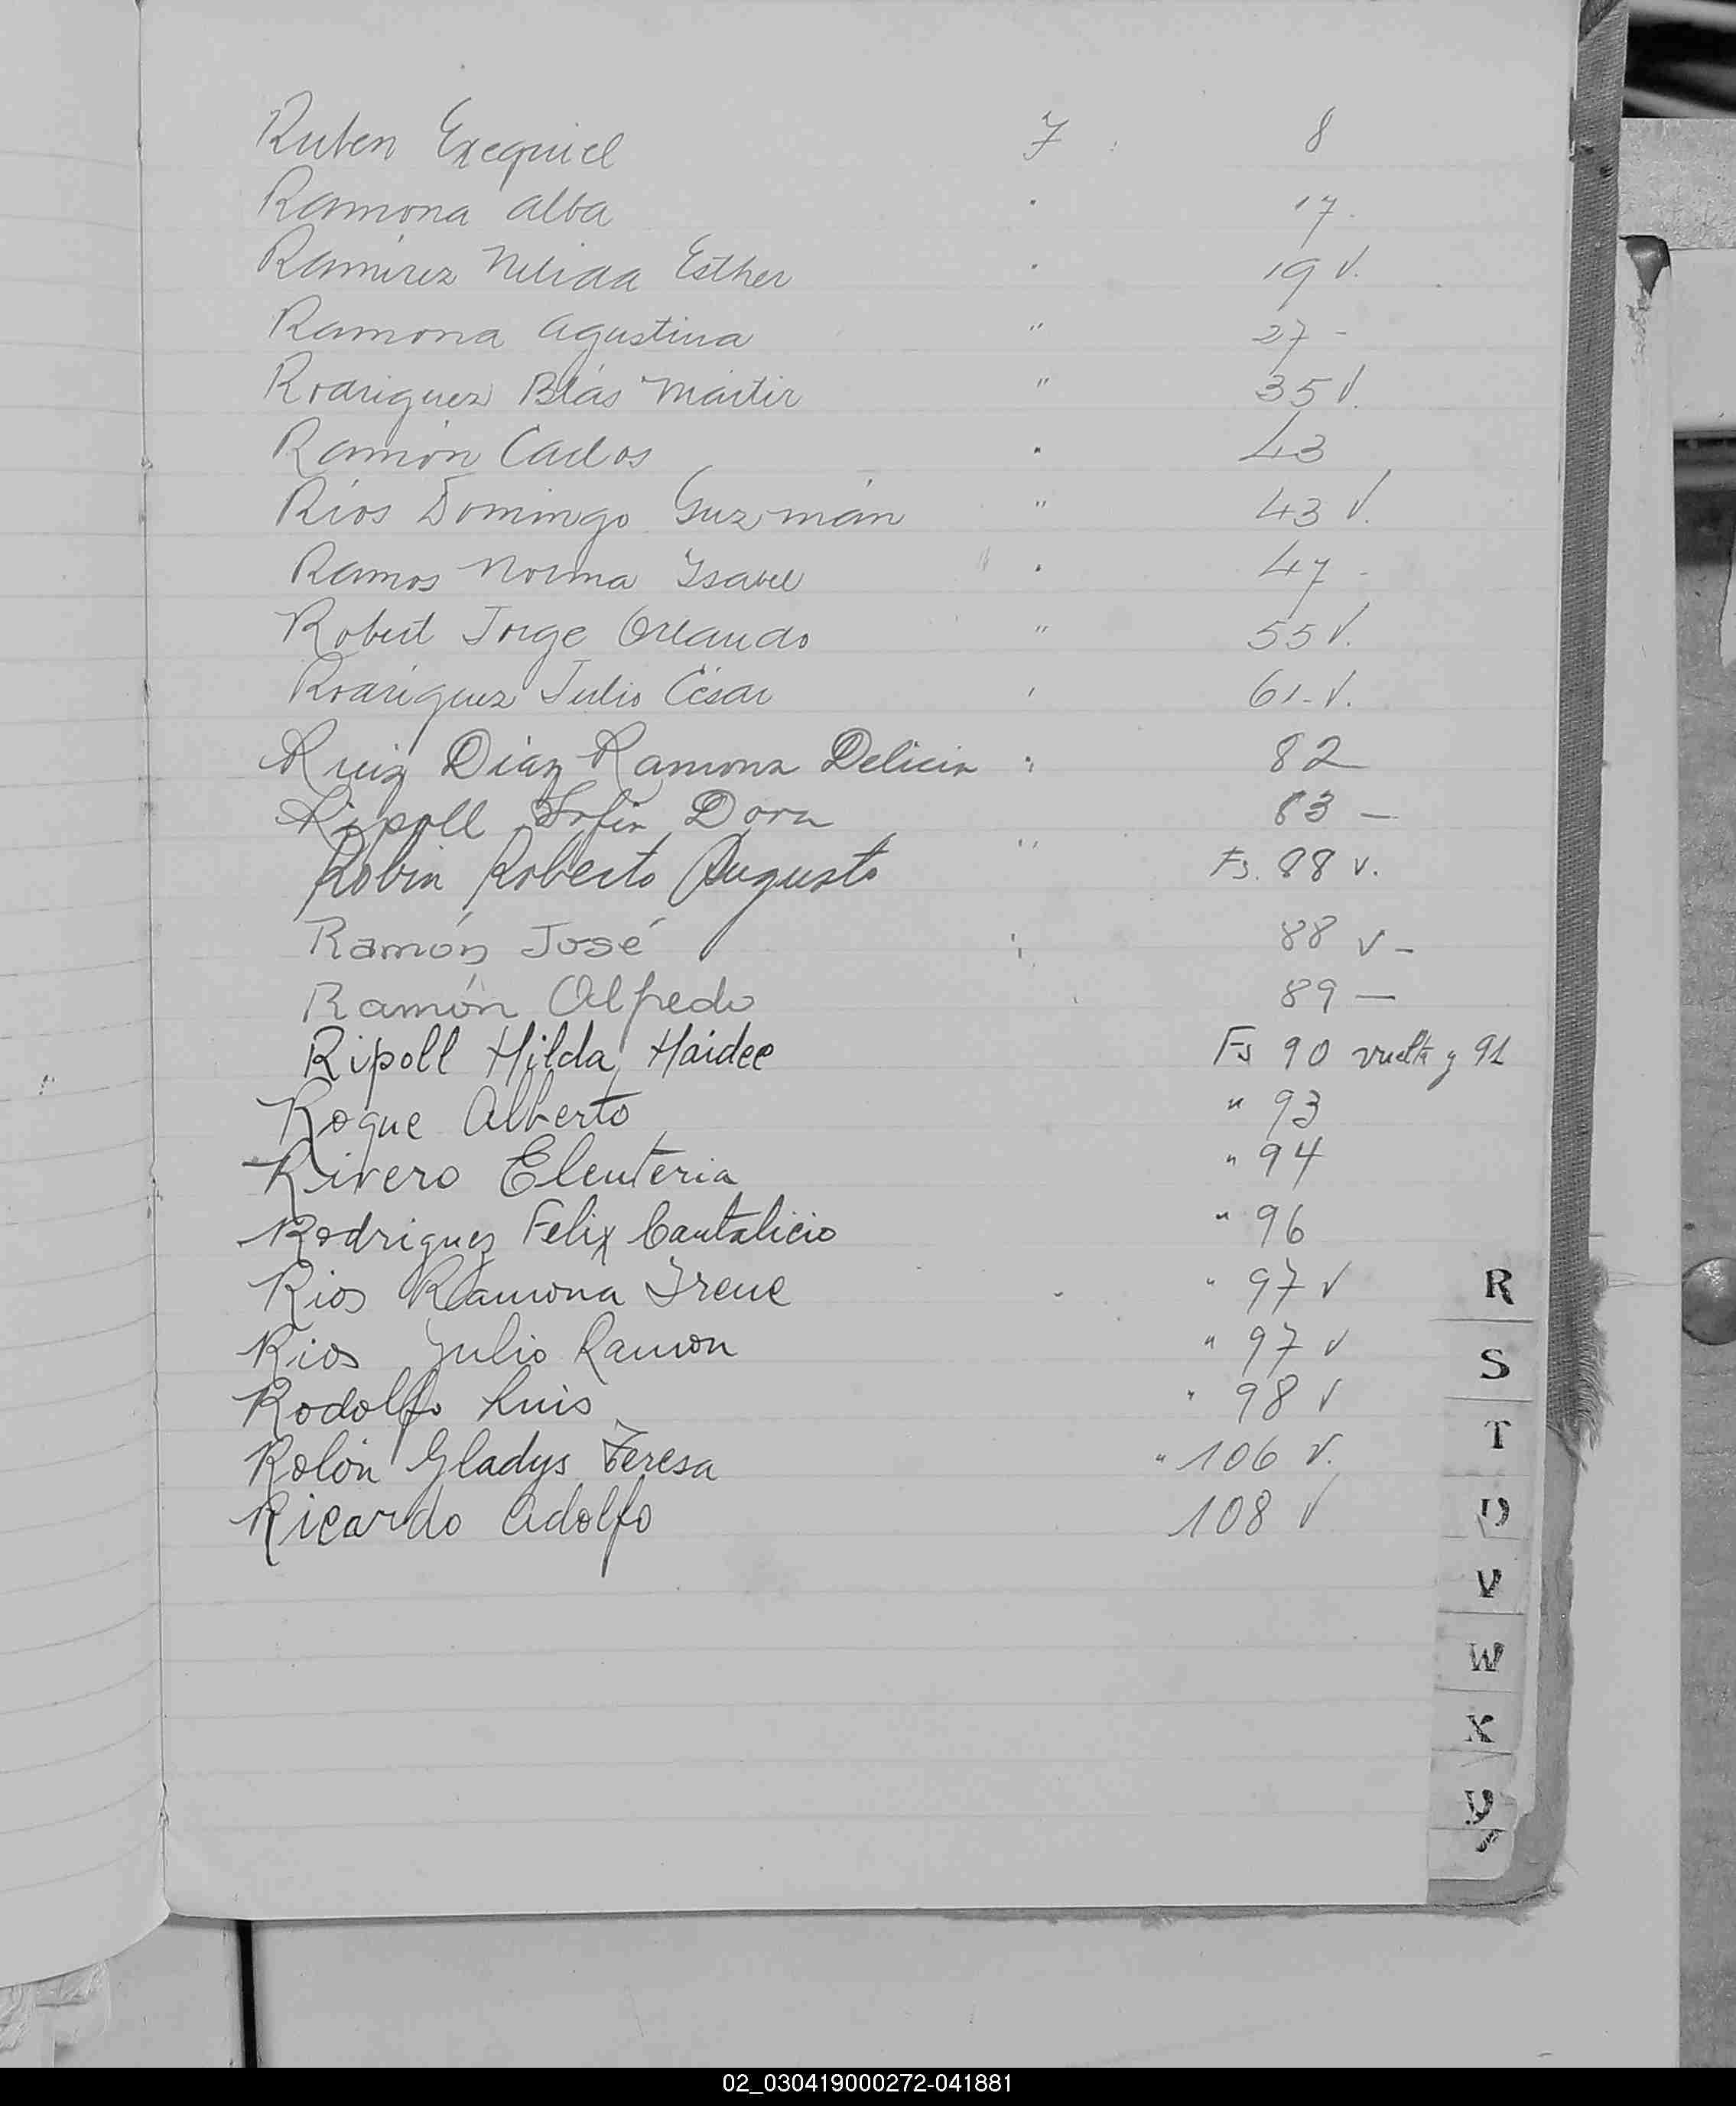 Ruben Exequiel F 8
Ramona Alba " 17 -
Ramírez Nélida Esther " 19 v.
Ramona Agustina " 27 -
Rodriguez Blás Mártir " 35 v.
Ramón Carlos " 43
Ríos Domingo Guzmán " 43 v.
Ramos Norma Ysabel " 47 -
Robert Jorge Orlando " 55 v.
Rodríguez Julio César " 61 - v.
Ruiz Díaz Ramona Delicia " 82
Ripoll Sofia Dora 83 —
Robin Roberto Augusto " Fs. 88 v.
Ramón José " 88 v -
Ramón Alfredo 89 —
Ripoll Hilda Haidee Fs 90 vuelta y 91
Roque Alberto " 93
Rivero Eleuteria " 94
Rodriguez Felix Cantalicio " 96
Rios Ramona Irene " 97 v
Rios Julio Ramon " 97 v
Rodolfo Luis " 98 v
Rolón Gladys Teresa " 106 v.
Ricardo Adolfo 108 v
R
S
T
V
W
X
Y
02_030419000272-041881